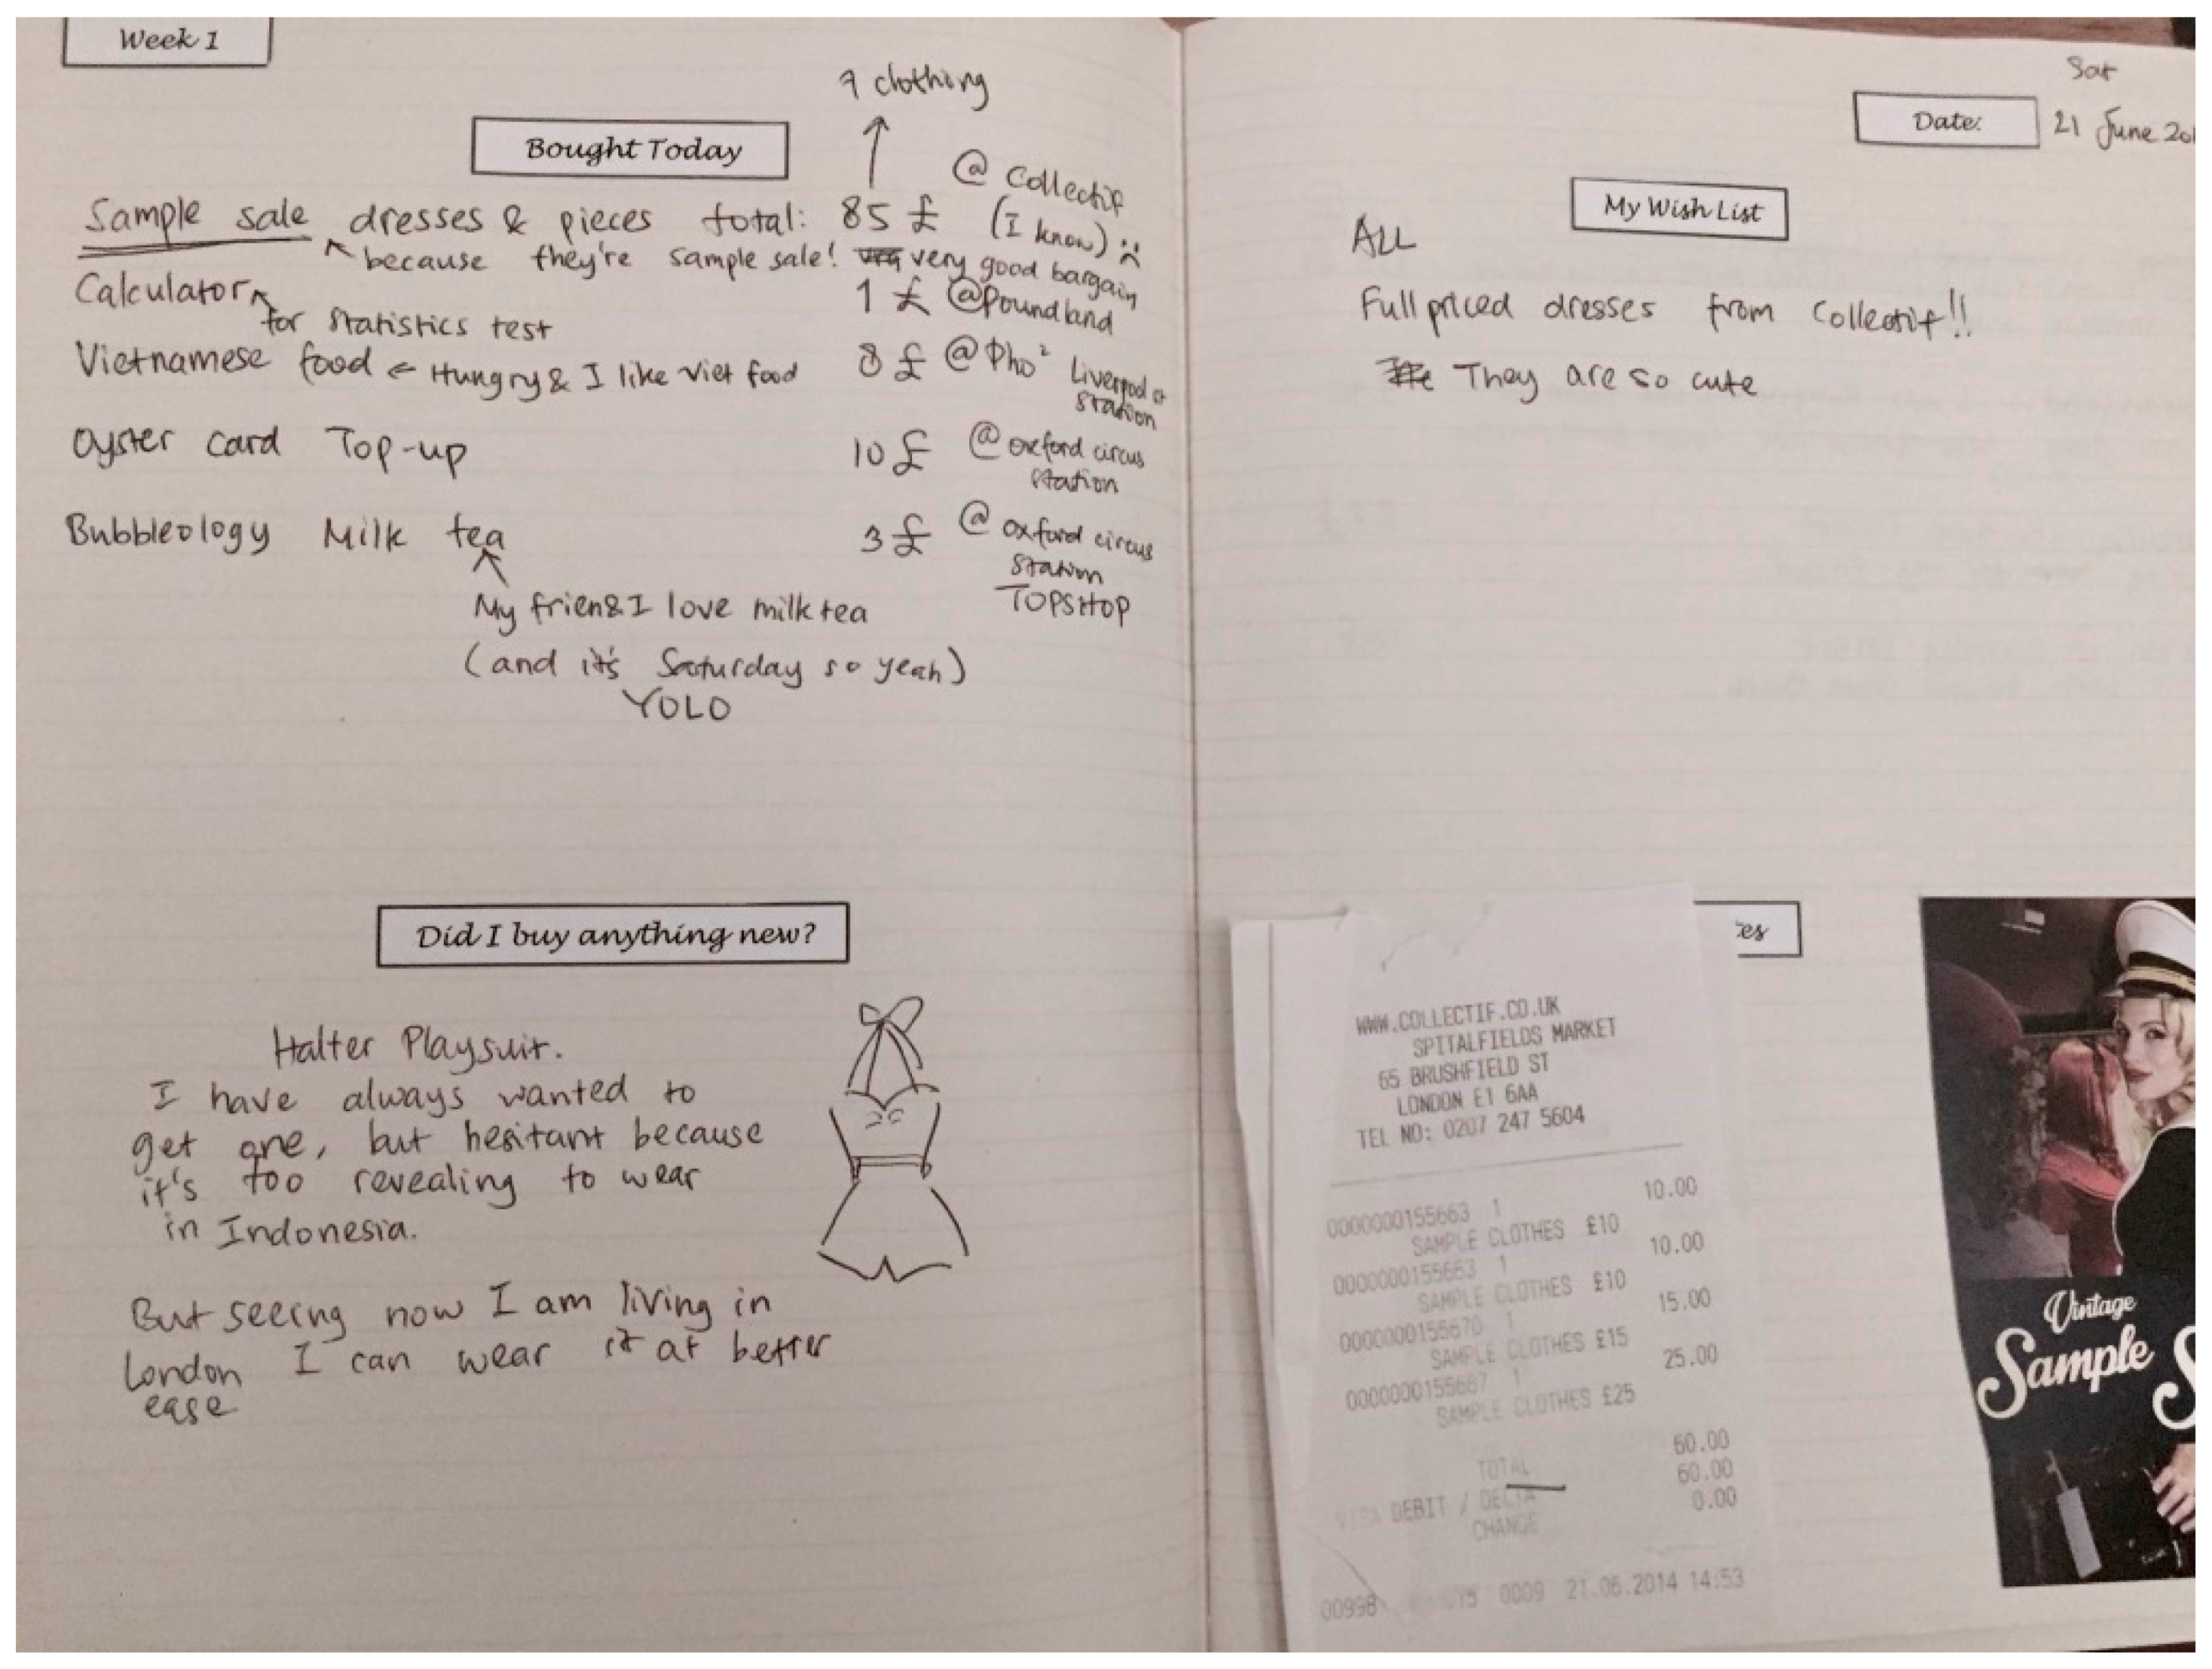 Week 1
7 clothing
Bought Today
@ Collectif
Sample sale dresses & pieces total: 85 £ (I know) :(
because they're sample sale! very good bargain
Calculator 1 £ @Poundland
for statistics test
Vietnamese food ← Hungry & I like Viet food 8 £ @ Pho² Liverpool st
station
Oyster card Top-up 10 £ @ oxford circus
station
Bubbleology Milk tea 3 £ @ oxford circus
station
TOPSHOP
My frien & I love milk tea
(and it's Saturday so yeah)
YOLO
Did I buy anything new?
Halter Playsuit.
I have always wanted to
get one, but hesitant because
it's too revealing to wear
in Indonesia.
But seeing now I am living in
London I can wear it at better
ease
Sat
Date: 21 June 20
My Wish List
ALL
Full priced dresses from Collectif!!
They are so cute
es
WWW.COLLECTIF.CO.UK
SPITALFIELDS MARKET
65 BRUSHFIELD ST
LONDON E1 6AA
TEL NO: 0207 247 5604
0000000155663 1 10.00
SAMPLE CLOTHES £10
0000000155663 1 10.00
SAMPLE CLOTHES £10
0000000155670 1 15.00
SAMPLE CLOTHES £15
0000000155687 1 25.00
SAMPLE CLOTHES £25
TOTAL 60.00
VISA DEBIT / DELTA 60.00
CHANGE 0.00
00998 0009 21.06.2014 14:53
Vintage
Sample S